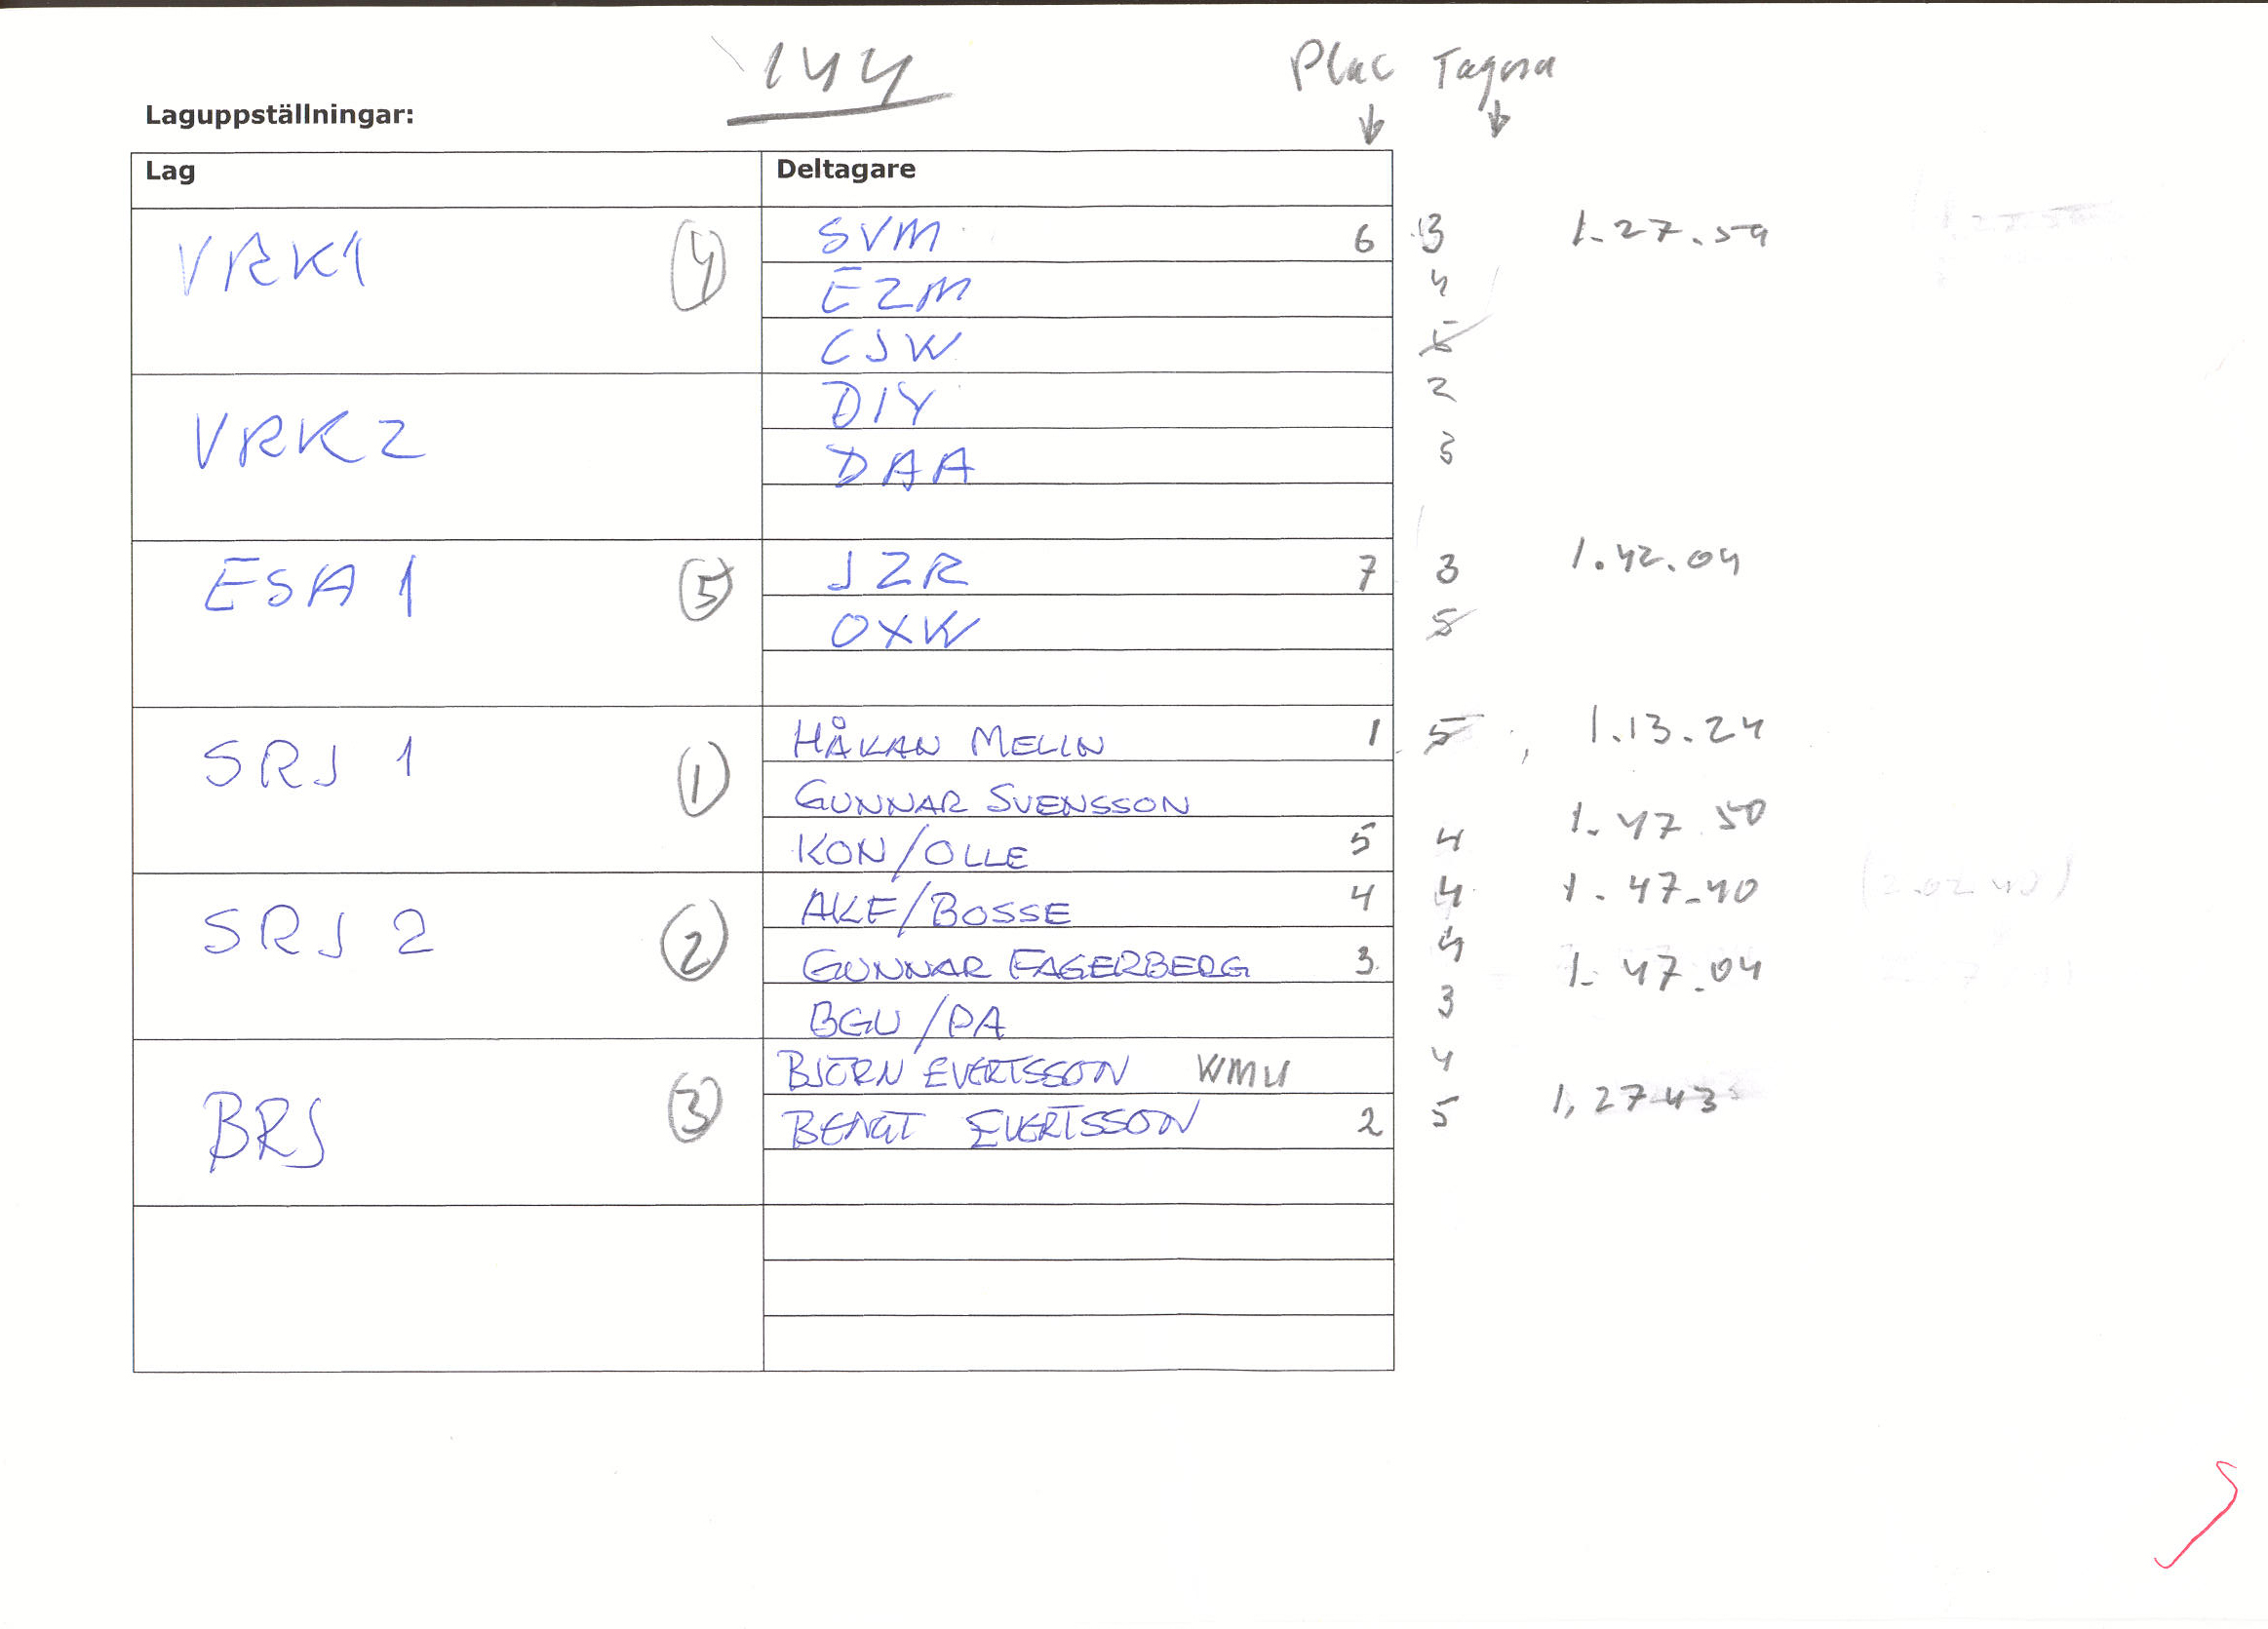 144
Plac Tagna
Laguppställningar:
Lag Deltagare
VRK1 4 SVM 6 3 1.27.59
EZM 4
CJW 5
VRK 2 DIY 2
DAA 3
ESA 1 5 JZR 7 3 1.42.04
OXW 5
SRJ 1 1 HÅKAN MELIN 1 5 1.13.24
GUNNAR SVENSSON
KON/OLLE 5 4 1.47.50
SRJ 2 2 AKE/BOSSE 4 4 1.47.40 (2.02.40)
GUNNAR FAGERBERG 3 4 1.47.04
BGU/PA 3
BRJ 3 BJÖRN EVERTSSON WMU 4
BENGT EVERTSSON 2 5 1,27 43